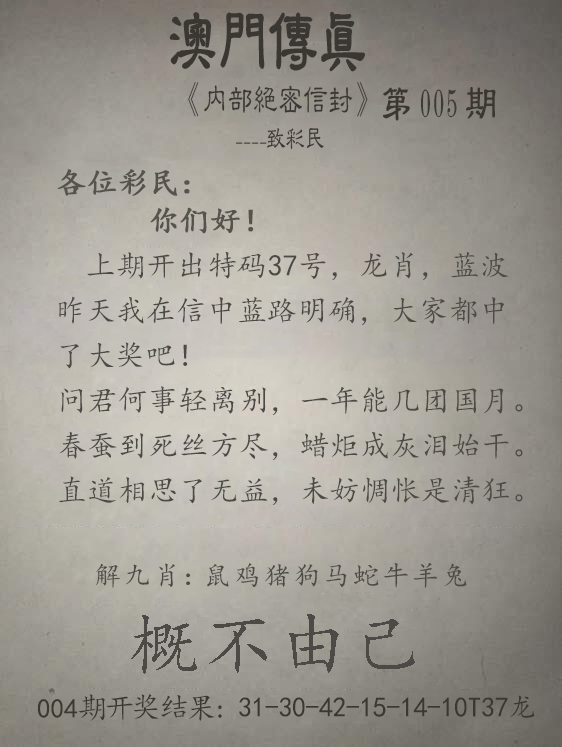 澳門傳眞
《内部絕密信封》第005期
----致彩民
各位彩民：
你们好！
上期开出特码37号，龙肖，蓝波
昨天我在信中蓝路明确，大家都中
了大奖吧！
问君何事轻离别，一年能几团国月。
春蚕到死丝方尽，蜡炬成灰泪始干。
直道相思了无益，未妨惆怅是清狂。
解九肖：鼠鸡猪狗马蛇牛羊兔
概不由己
004期开奖结果：31-30-42-15-14-10T37龙